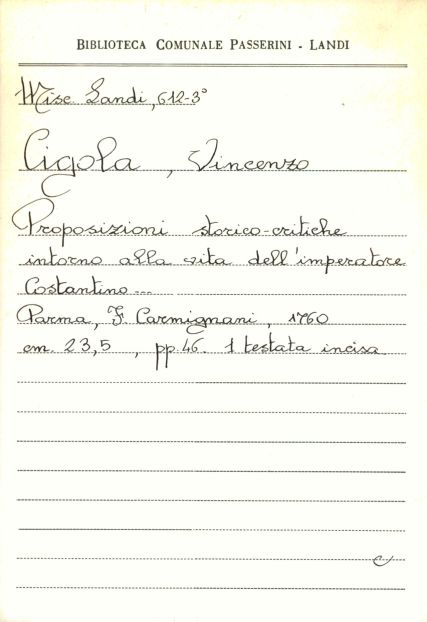 BIBLIOTECA COMUNALE PASSERINI - LANDI
Misc. Landi, 612-3°
Cigola, Vincenzo
Proposizioni storico-critiche
intorno alla vita dell'imperatore
Costantino...
Parma, F. Carmignani, 1760
cm. 23,5 , pp. 46. 1 testata incisa